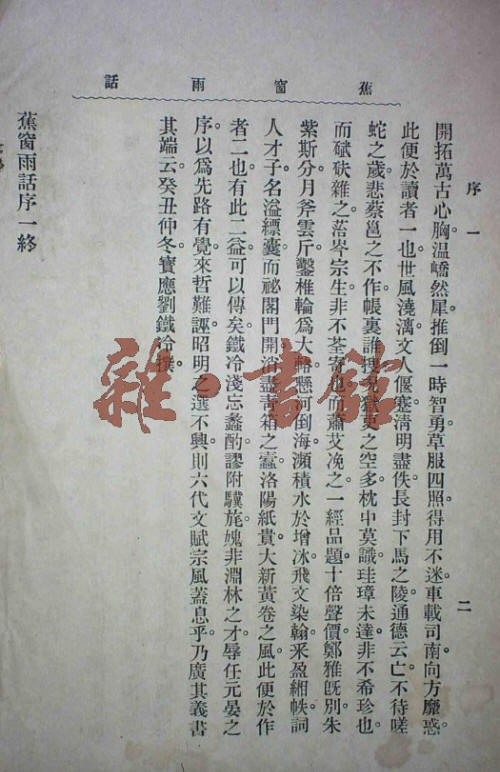 蕉窗雨話
序一 二
開拓萬古心胸。温嶠然犀。推倒一時智勇。草服四照。得用不迷。車載司南。向方靡惑。
此便於讀者一也。世風澆漓。文人偃蹇。清明盡佚。長封下馬之陵。通德云亡。不待嗟
蛇之歲。悲蔡邕之不作。帳裏誰搜。獄吏之空多。枕中莫識。珪璋未達。非不希珍也。
而碔砆雜之。岑宗生。非不荃寄也。而蕭艾凂之。一經品題。十倍聲價。鄭雅旣別。朱
紫斯分。月斧雲斤。鑿椎輪爲大輅。懸河倒海。瀕積水於增冰。飛文染翰。采盈緗帙。詞
人才子。名溢縹囊。而祕閣門開。消盡靑箱之蠹。洛陽紙貴。大新黃卷之風。此便於作
者二也。有此二益。可以傳矣。鐵冷淺忘蠡酌。謬附驥旄。媿非淵林之才。辱任元晏之
序。以爲先路。有覺來哲難誣。昭明之選不興。則六代文賦宗風蓋息乎。乃廣其義。書
其端云。癸丑仲冬。寶應劉鐵冷撰。
蕉窗雨話序一終
雜·書館